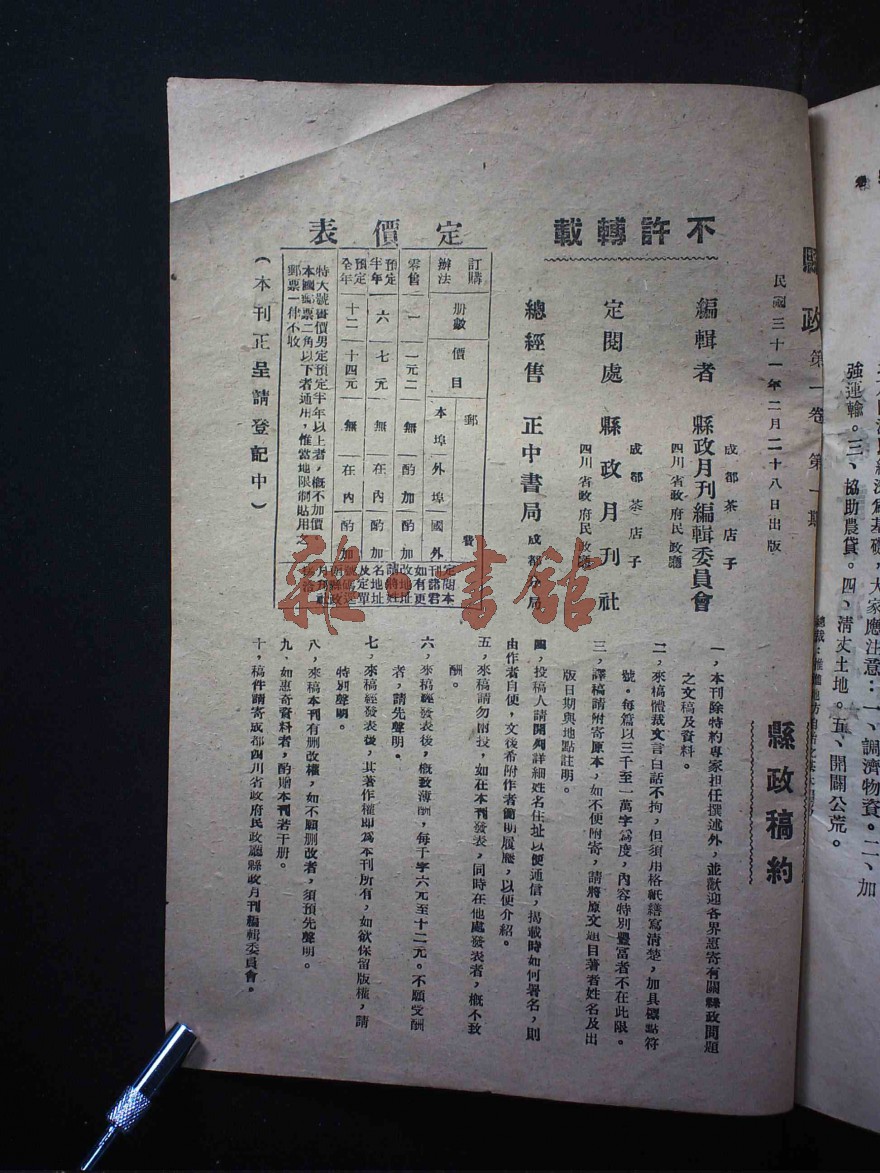 縣政 第一卷 第一期
民國三十一年二月二十八日出版
不許轉載
編輯者 縣政月刊編輯委員會
成都茶店子
四川省政府民政廳
定閱處 縣政月刊社
成都茶店子
四川省政府民政廳
總經售 正中書局 成都分局
定價表
訂購辦法 冊數 價目 郵費
本埠 外埠 國外
零售 一 一元二 無 酌加
預定半年 六 七元 無 在內 酌加
預定全年 十二 十四元 無 在內 酌加
特大號書價另定預定半年以上者,概不加價,
本國郵票二角以下者通用,惟當地限制貼用之
郵票一律不收
定閱本
刊諸君
如有更
改地址
請將姓
名地址
及定單
(本刊正呈請登記中)
縣政稿約
一,本刊除特約專家担任撰述外,並歡迎各界惠寄有關縣政問題
之文稿及資料。
二,來稿體裁文言白話不拘,但須用格紙繕寫清楚,加具標點符
號。每篇以三千至一萬字為度,內容特別豐富者不在此限。
三,譯稿請附寄原本,如不便附寄,請將原文題目著者姓名及出
版日期與地點註明。
四,投稿人請開列詳細姓名住址以便通信,揭載時如何署名,則
由作者自便,文後希附作者簡明履歷,以便介紹。
五,來稿請勿兩投,如在本刊發表,同時在他處發表者,概不致
酬。
六,來稿經發表後,概致薄酬,每千字六元至十二元。不願受酬
者,請先聲明。
七,來稿經發表後,其著作權即為本刊所有,如欲保留版權,請
特別聲明。
八,來稿本刊有刪改權,如不願刪改者,須預先聲明。
九,如惠寄資料者,酌贈本刊若干册。
十,稿件請寄成都四川省政府民政廳縣政月刊編輯委員會。
強連輸。三、協助農貸。四、清丈土地。五、開闢公荒。
基礎,大家應注意:一、調濟物資。二、加
雜書館